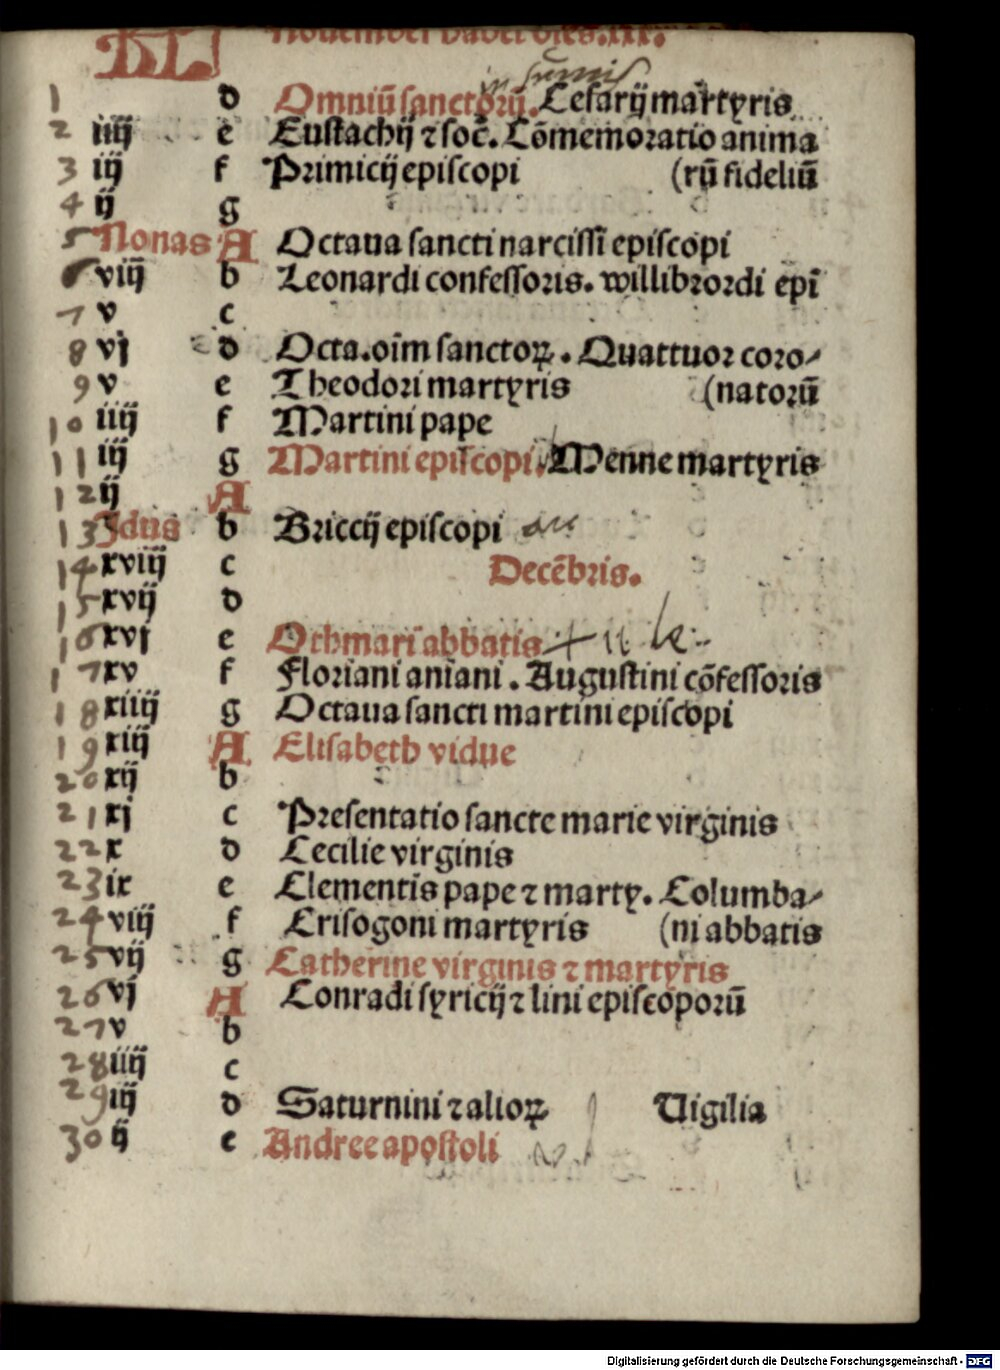 KL Nouember habet dies.xxx.
in summis
1 d Omniū sanctorū. Cesarij martyris
2 iiij e Eustachij ⁊ soc̄. Cōmemoratio anima
3 iij f Primicij episcopi (rū fideliū
4 ij g
5 Nonas A Octaua sancti narcissi episcopi
6 viij b Leonardi confessoris. willibrordi epī
7 v c
8 vj d Octa. oīm sanctoꝝ. Quattuor coro⸗
9 v e Theodori martyris (natorū
10 iiij f Martini pape
11 iij g Martini episcopi. Menne martyris
12 ij A
13 Jdus b Briccij episcopi
14 xviij c Decēbris.
15 xvij d
16 xvj e Othmari abbatis
17 xv f Floriani aniani. Augustini cōfessoris
18 xiiij g Octaua sancti martini episcopi
19 xiij A Elisabeth vidue
20 xij b
21 xj c Presentatio sancte marie virginis
22 x d Cecilie virginis
23 ix e Clementis pape ⁊ marty. Columba⸗
24 viij f Crisogoni martyris (ni abbatis
25 vij g Catherine virginis ⁊ martyris
26 vj A Conradi syricij ⁊ lini episcoporū
27 v b
28 iiij c
29 iij d Saturnini ⁊ alioꝝ Uigilia
30 ij e Andree apostoli
Digitalisierung gefördert durch die Deutsche Forschungsgemeinschaft - DFG